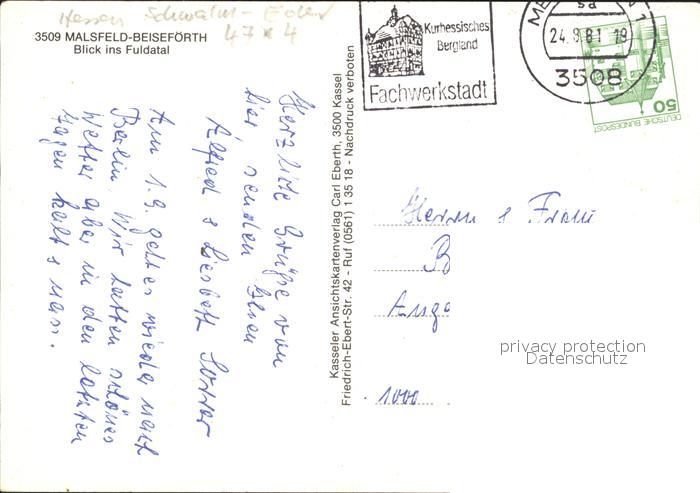 Hessen Schwalm-Eder
47 x 4
3509 MALSFELD-BEISEFÖRTH
Blick ins Fuldatal
Herzliche Grüße von
hier senden Ihnen
Alfred & Liesbeth
Am 1.9. geht es wieder nach
Berlin. Wir hatten schönes
Wetter aber in den letzten
Tagen kalt & nass.
Kasseler Ansichtskartenverlag Carl Eberth, 3500 Kassel
Friedrich-Ebert-Str. 42 - Ruf (0561) 1 35 18 - Nachdruck verboten
Kurhessisches
Bergland
Fachwerkstadt
ME
1
24.8.81 19
3508
50
DEUTSCHE BUNDESPOST
Herrn & Frau
B
1000
privacy protection
Datenschutz